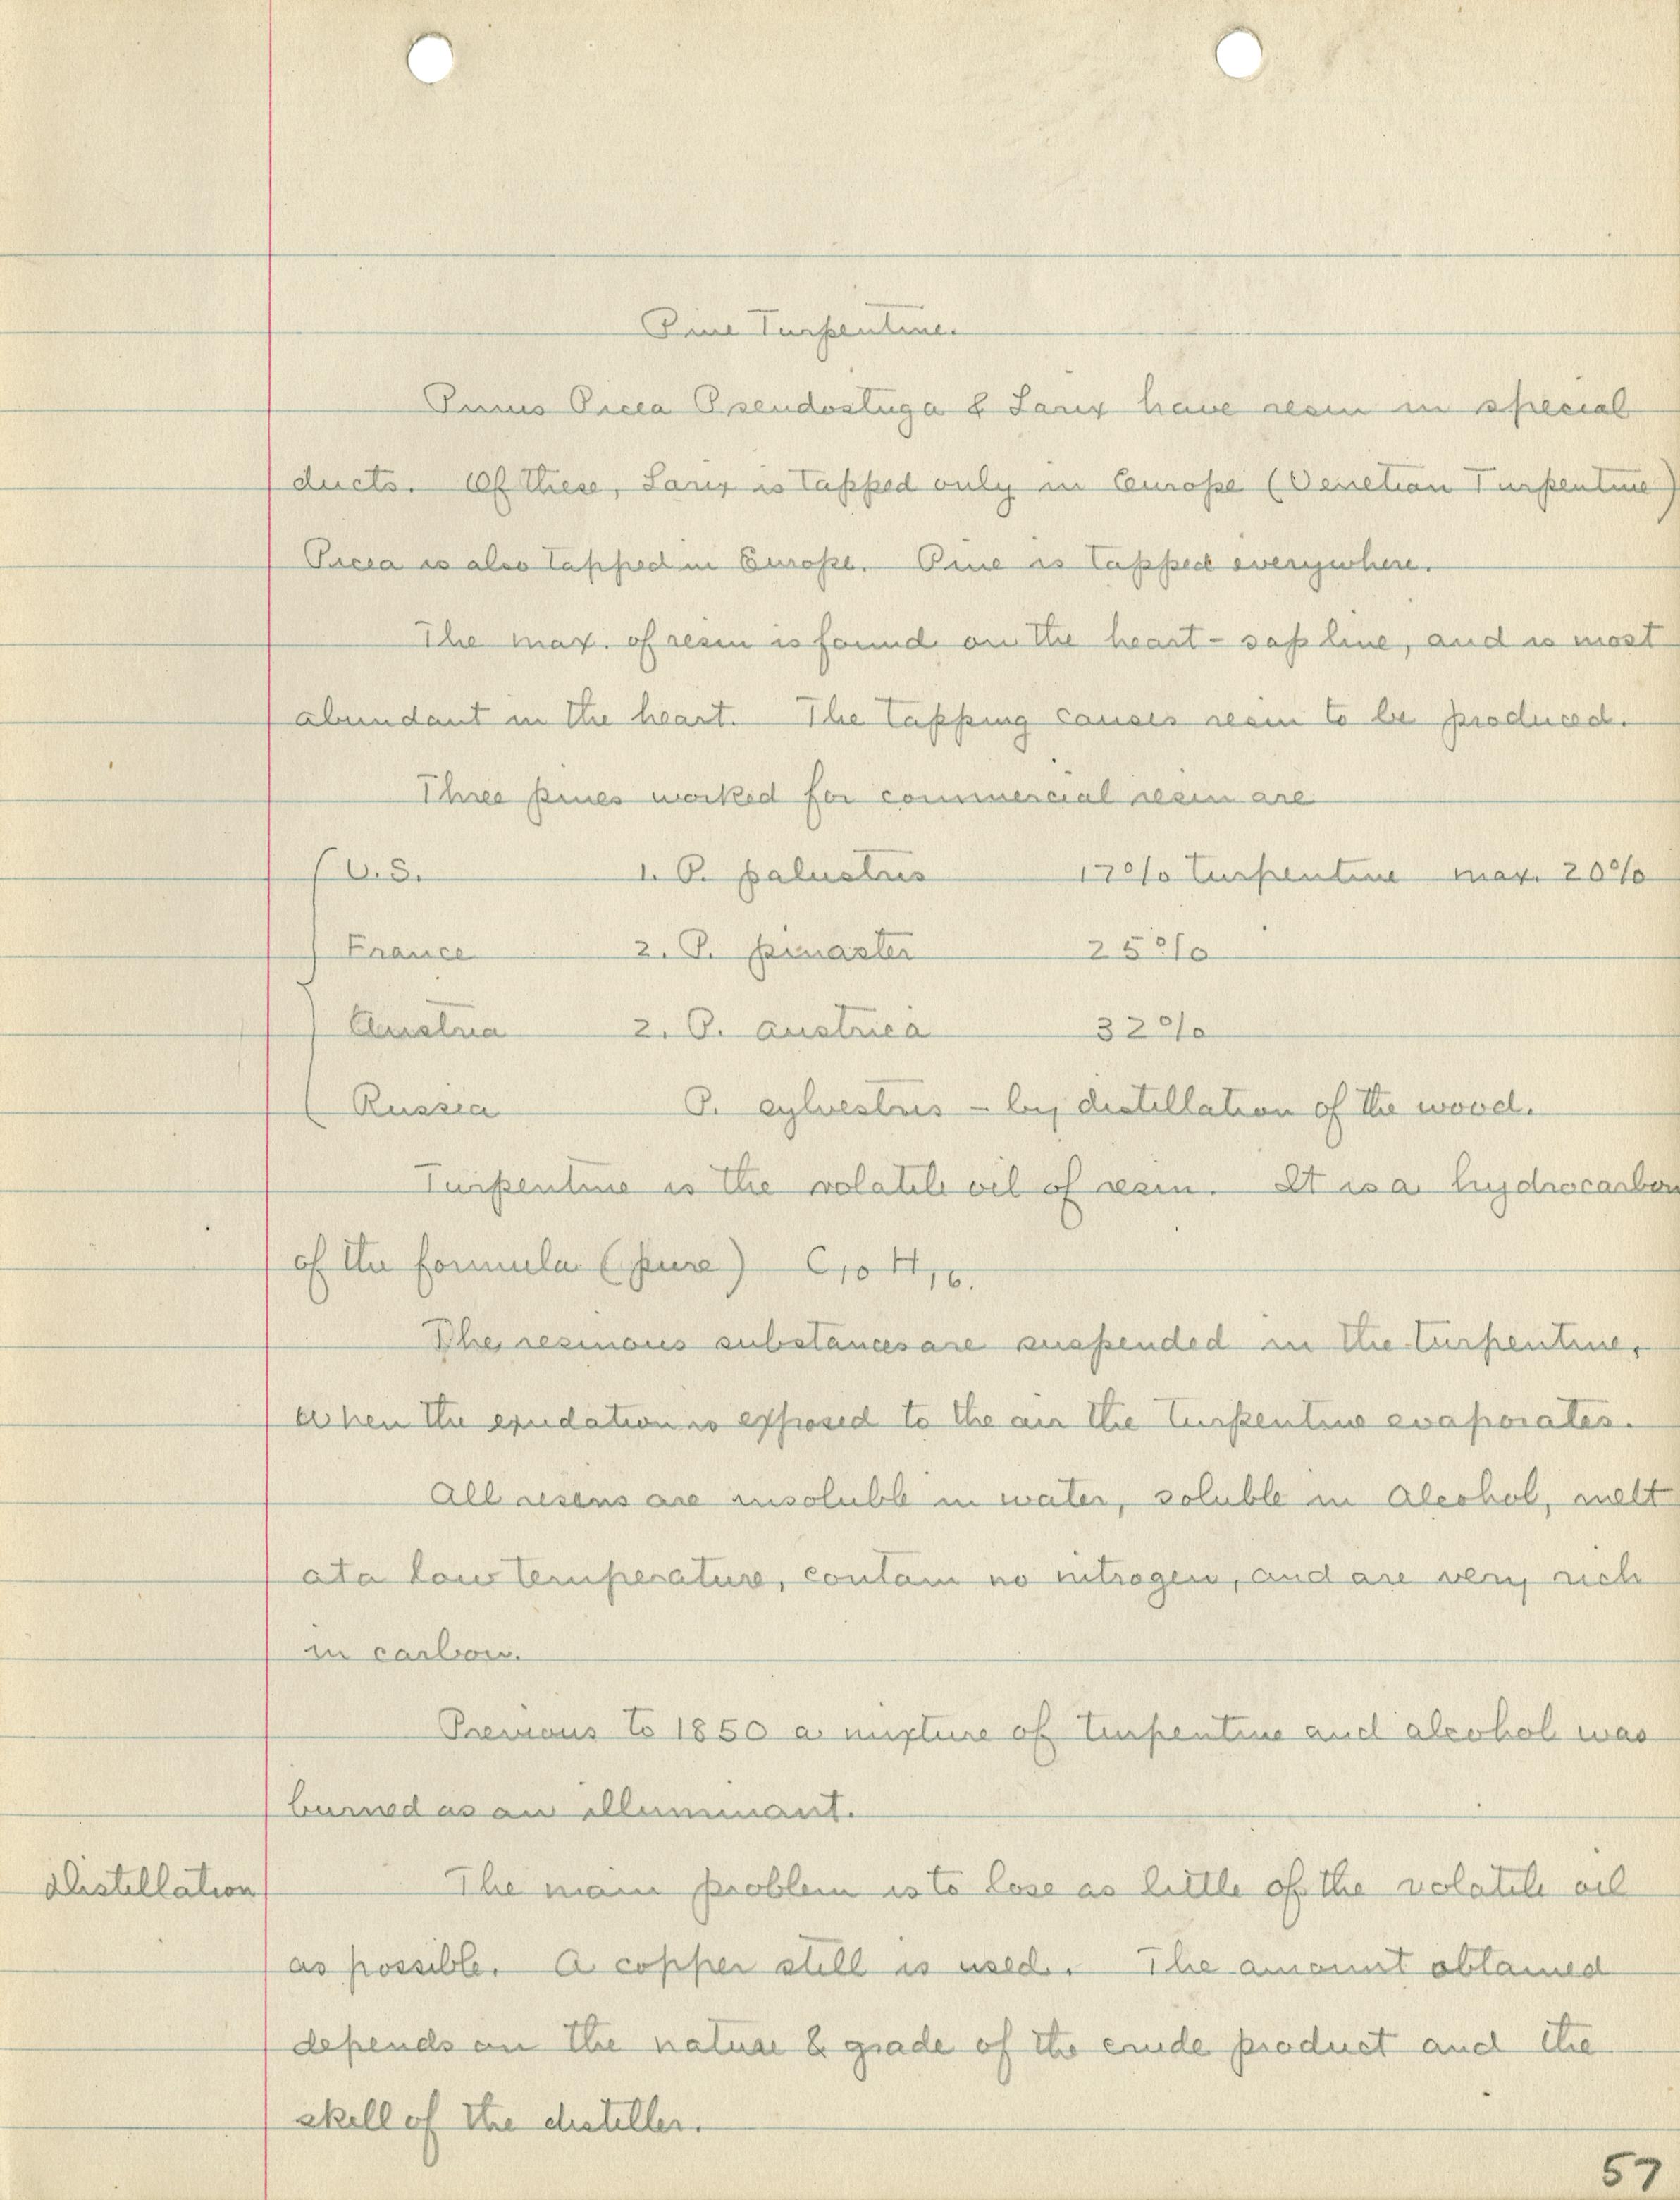 Pine Turpentine.
Pinus Picea Pseudostuga & Larix have resin in special
ducts. Of these, Larix is tapped only in Europe (Venetian Turpentine)
Picea is also tapped in Europe. Pine is tapped everywhere.
The max. of resin is found on the heart-sap line, and is most
abundant in the heart. The tapping causes resin to be produced.
Three pines worked for commercial resin are
U.S. 1. P. palustris 17% turpentine max. 20%
France 2. P. pinaster 25%
Austria 2. P. austrica 32%
Russia P. sylvestris - by distillation of the wood.
Turpentine is the volatile oil of resin. It is a hydrocarbon
of the formula (pure) C10 H16.
The resinous substances are suspended in the turpentine,
when the exudation is exposed to the air the turpentine evaporates.
All resins are insoluble in water, soluble in alcohol, melt
at a low temperature, contain no nitrogen, and are very rich
in carbon.
Previous to 1850 a mixture of turpentine and alcohol was
burned as an illuminant.
Distillation The main problem is to lose as little of the volatile oil
as possible. A copper still is used. The amount obtained
depends on the nature & grade of the crude product and the
skill of the distiller.
57